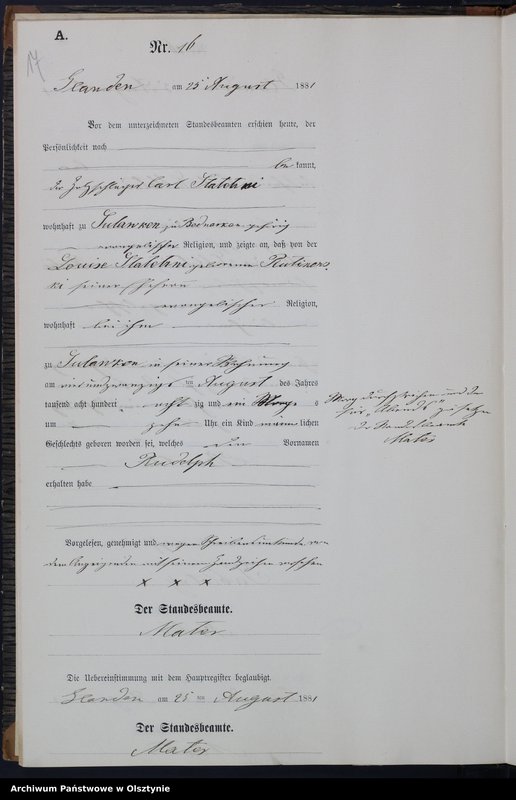 A.
17
Nr. 16
Glanden am 25 August 1881
Vor dem unterzeichneten Standesbeamten erschien heute, der
Persönlichkeit nach
be kannt,
der Carl
wohnhaft zu Sulawken zu Bednarken gehörig
evangelischer Religion, und zeigte an, daß von der
Louise geborenen
seiner Ehefrau
evangelischer Religion,
wohnhaft bei ihm
zu Sulawken in seiner Wohnung
am vierundzwanzigsten August des Jahres
tausend acht hundert acht zig und ein Morgens
um zehn Uhr ein Kind männlichen
Geschlechts geboren worden sei, welches den Vornamen
Rudolph
erhalten habe
Morgens durchstrichen und
für „Abends" zu setzen
Der Standesbeamte
Mater
Vorgelesen, genehmigt und wegen Schreibensunkunde von
dem Anzeigenden mit seinem Handzeichen versehen
x x x
Der Standesbeamte.
Mater
Die Uebereinstimmung mit dem Hauptregister beglaubigt.
Glanden am 25 ten August 1881
Der Standesbeamte.
Mater
Archiwum Państwowe w Olsztynie